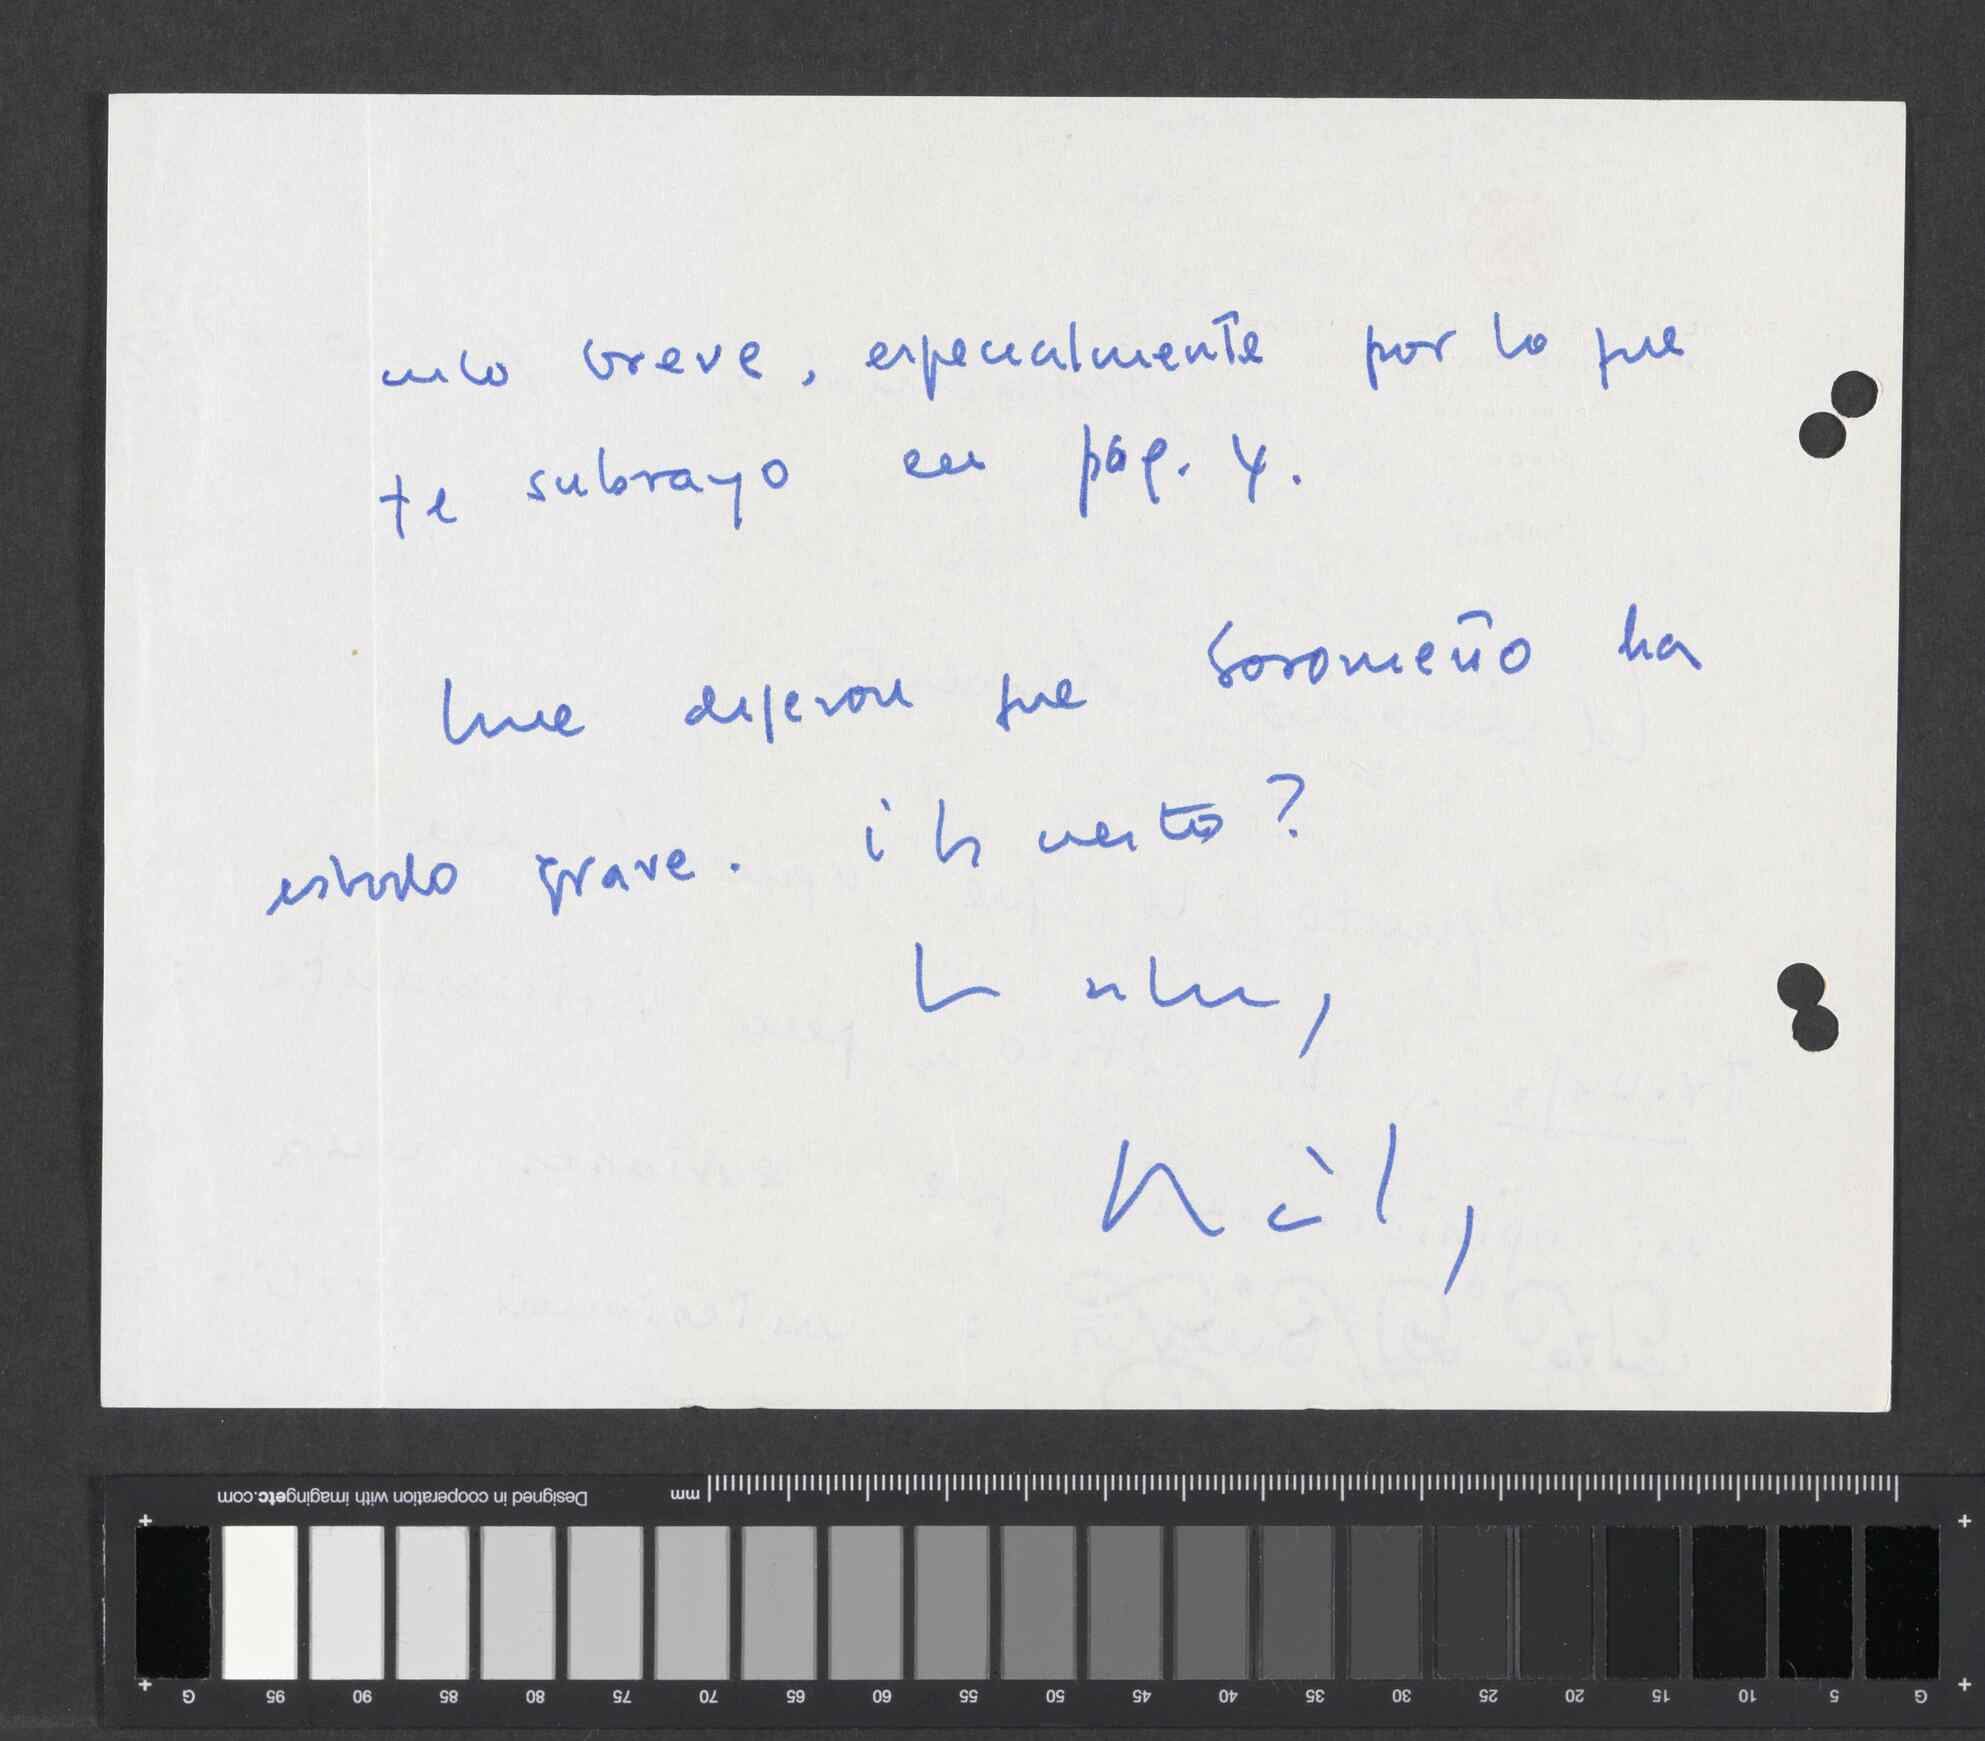 culo breve, especialmente por lo que
te subrayo en pág. 4.
Me dijeron que Soromeño ha
estado grave. ¿Es cierto?
Designed in cooperation with imagingetc.com
mm
G 95 90 85 80 75 70 65 60 55 50 45 40 35 30 25 20 15 10 5 G